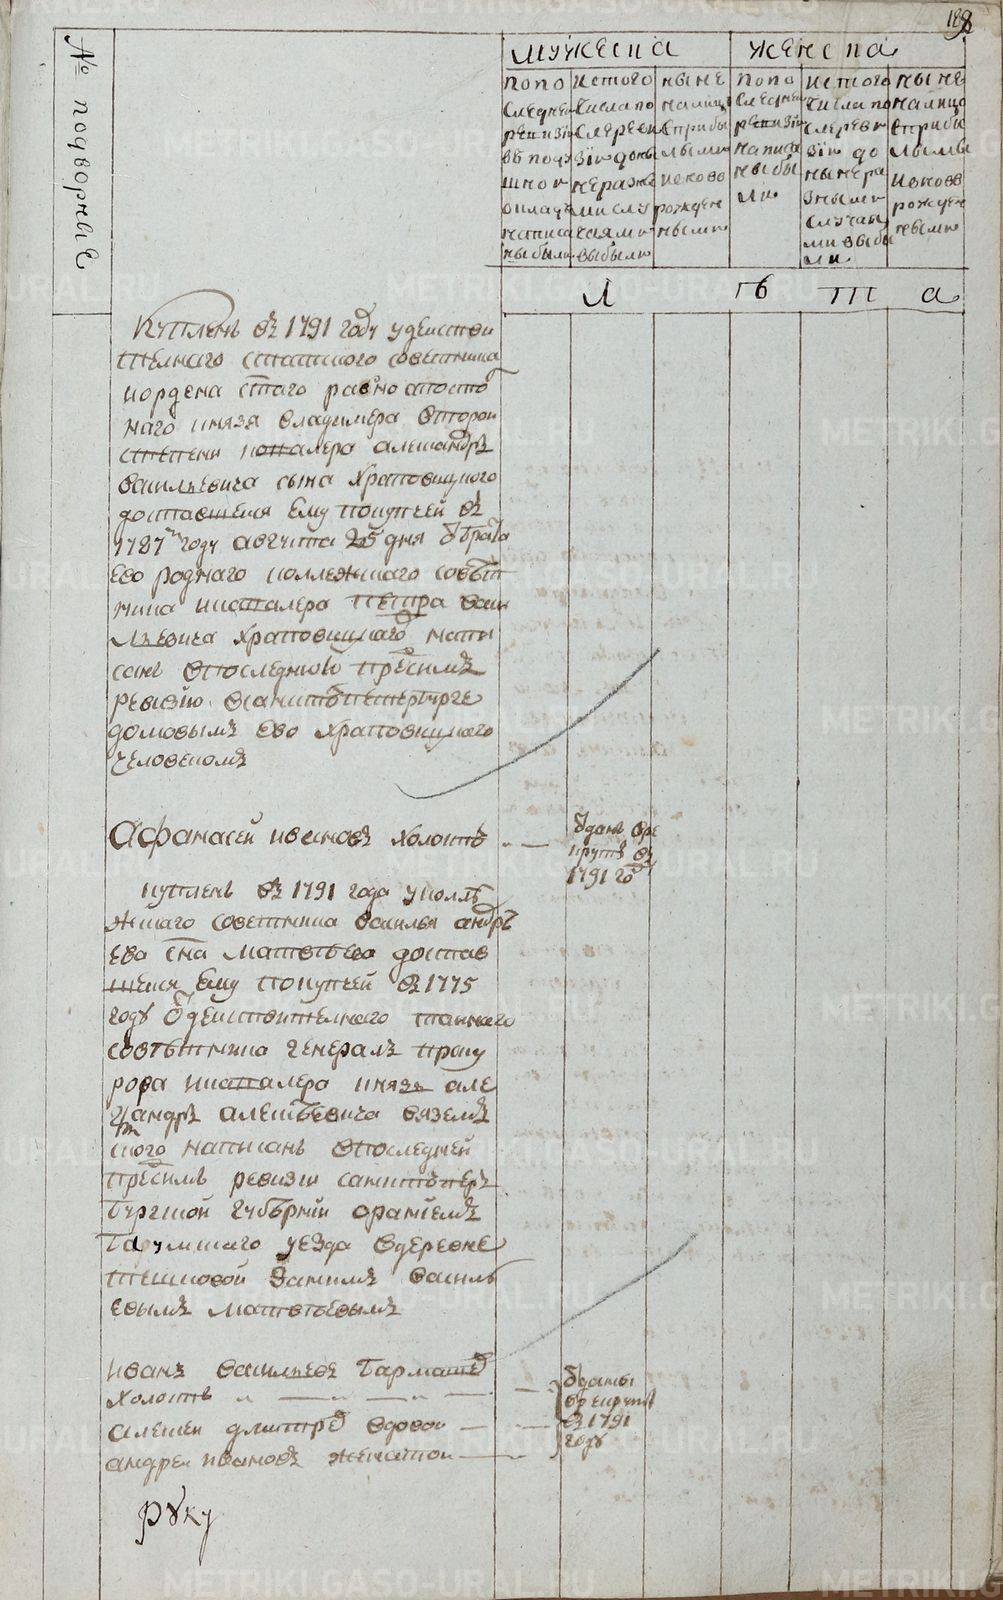 188
№ подворные
мужеска
женска
попо
следней
ревизiи
в подушном
окладе
написаны были
истого
числа по
сле ревизiи до ныне
разными случаями
выбыли
ныне
налицо
с прибылыми
и сново
рожденными
попо
следней
ревизiи
написаны бы
ли
истого
числа по
сле реви
зiи до
ныне ра
зными
случая
ми выбы
ли
ныне
налицо
с прибы
лыми
и сново
рожден
ными
л ѣ т а
Куплень въ 1791 году удействи
телнаго статскаго советника
иордена стаго равно апостол
наго князя владимера второй
степени кавалера александръ
васильевича сына храповицкого
доставшеися ему покупкой въ
1787м году августа 25 дня ѿ брата
ево роднаго коллежскаго совѣт
ника икавалера петра васи
льевича храповицкаго напи
санъ впоследнюю пре симъ
ревизiю всанктъпетербурге
домовымъ ево храповицкаго
человекомъ
Афанасей ивановъ холостъ
ѿданъ вре
круты въ
1791 го
куплень въ 1791 года уколле
жскаго советника василья андрѣ
ева сна матвѣева достав
шеися ему покупкой въ 1775
году ѿ действителнаго тайнаго
совѣтника генералъ проку
рора икавалера князь але
ѯандръ алексѣевича вяземъ
скаго написанъ впоследней
пре симъ ревизiи санктъпетеръ
бургской губѣрнiи оранiемъ
баумскаго уезда вдеревне
тешковой данилъ василь
евымъ матвѣевымъ
иванъ васильевъ гармашев
холостъ
алексей дмитрев вдовой
андрей ивановъ женатой
ѿданы
врекруты
въ 1791
году
рꙋку
METRIKI.GASO-URAL.RU